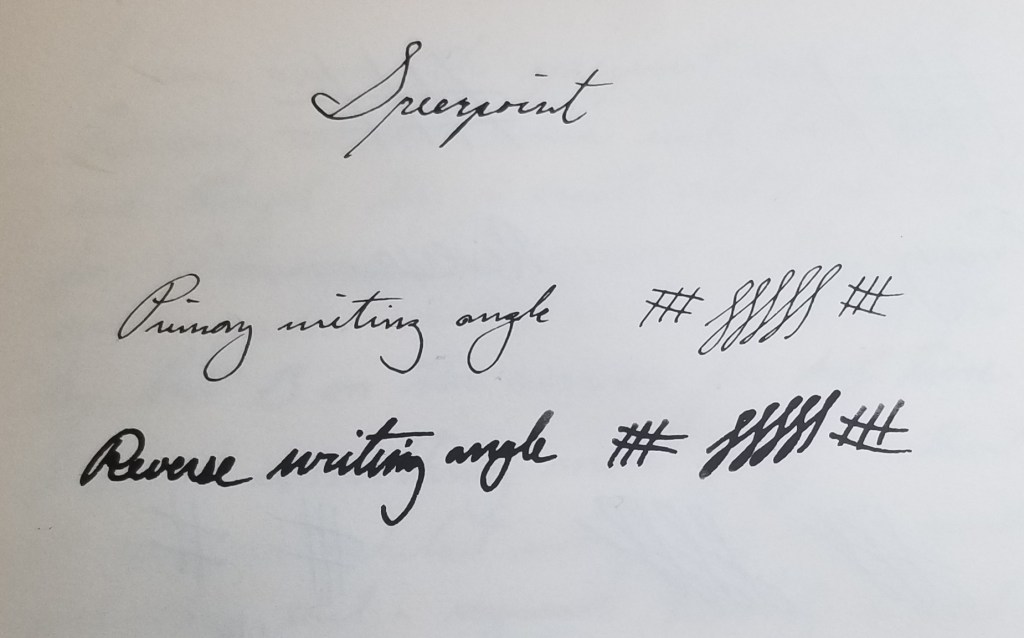 Speerpoint
Primary writing angle
Reverse writing angle